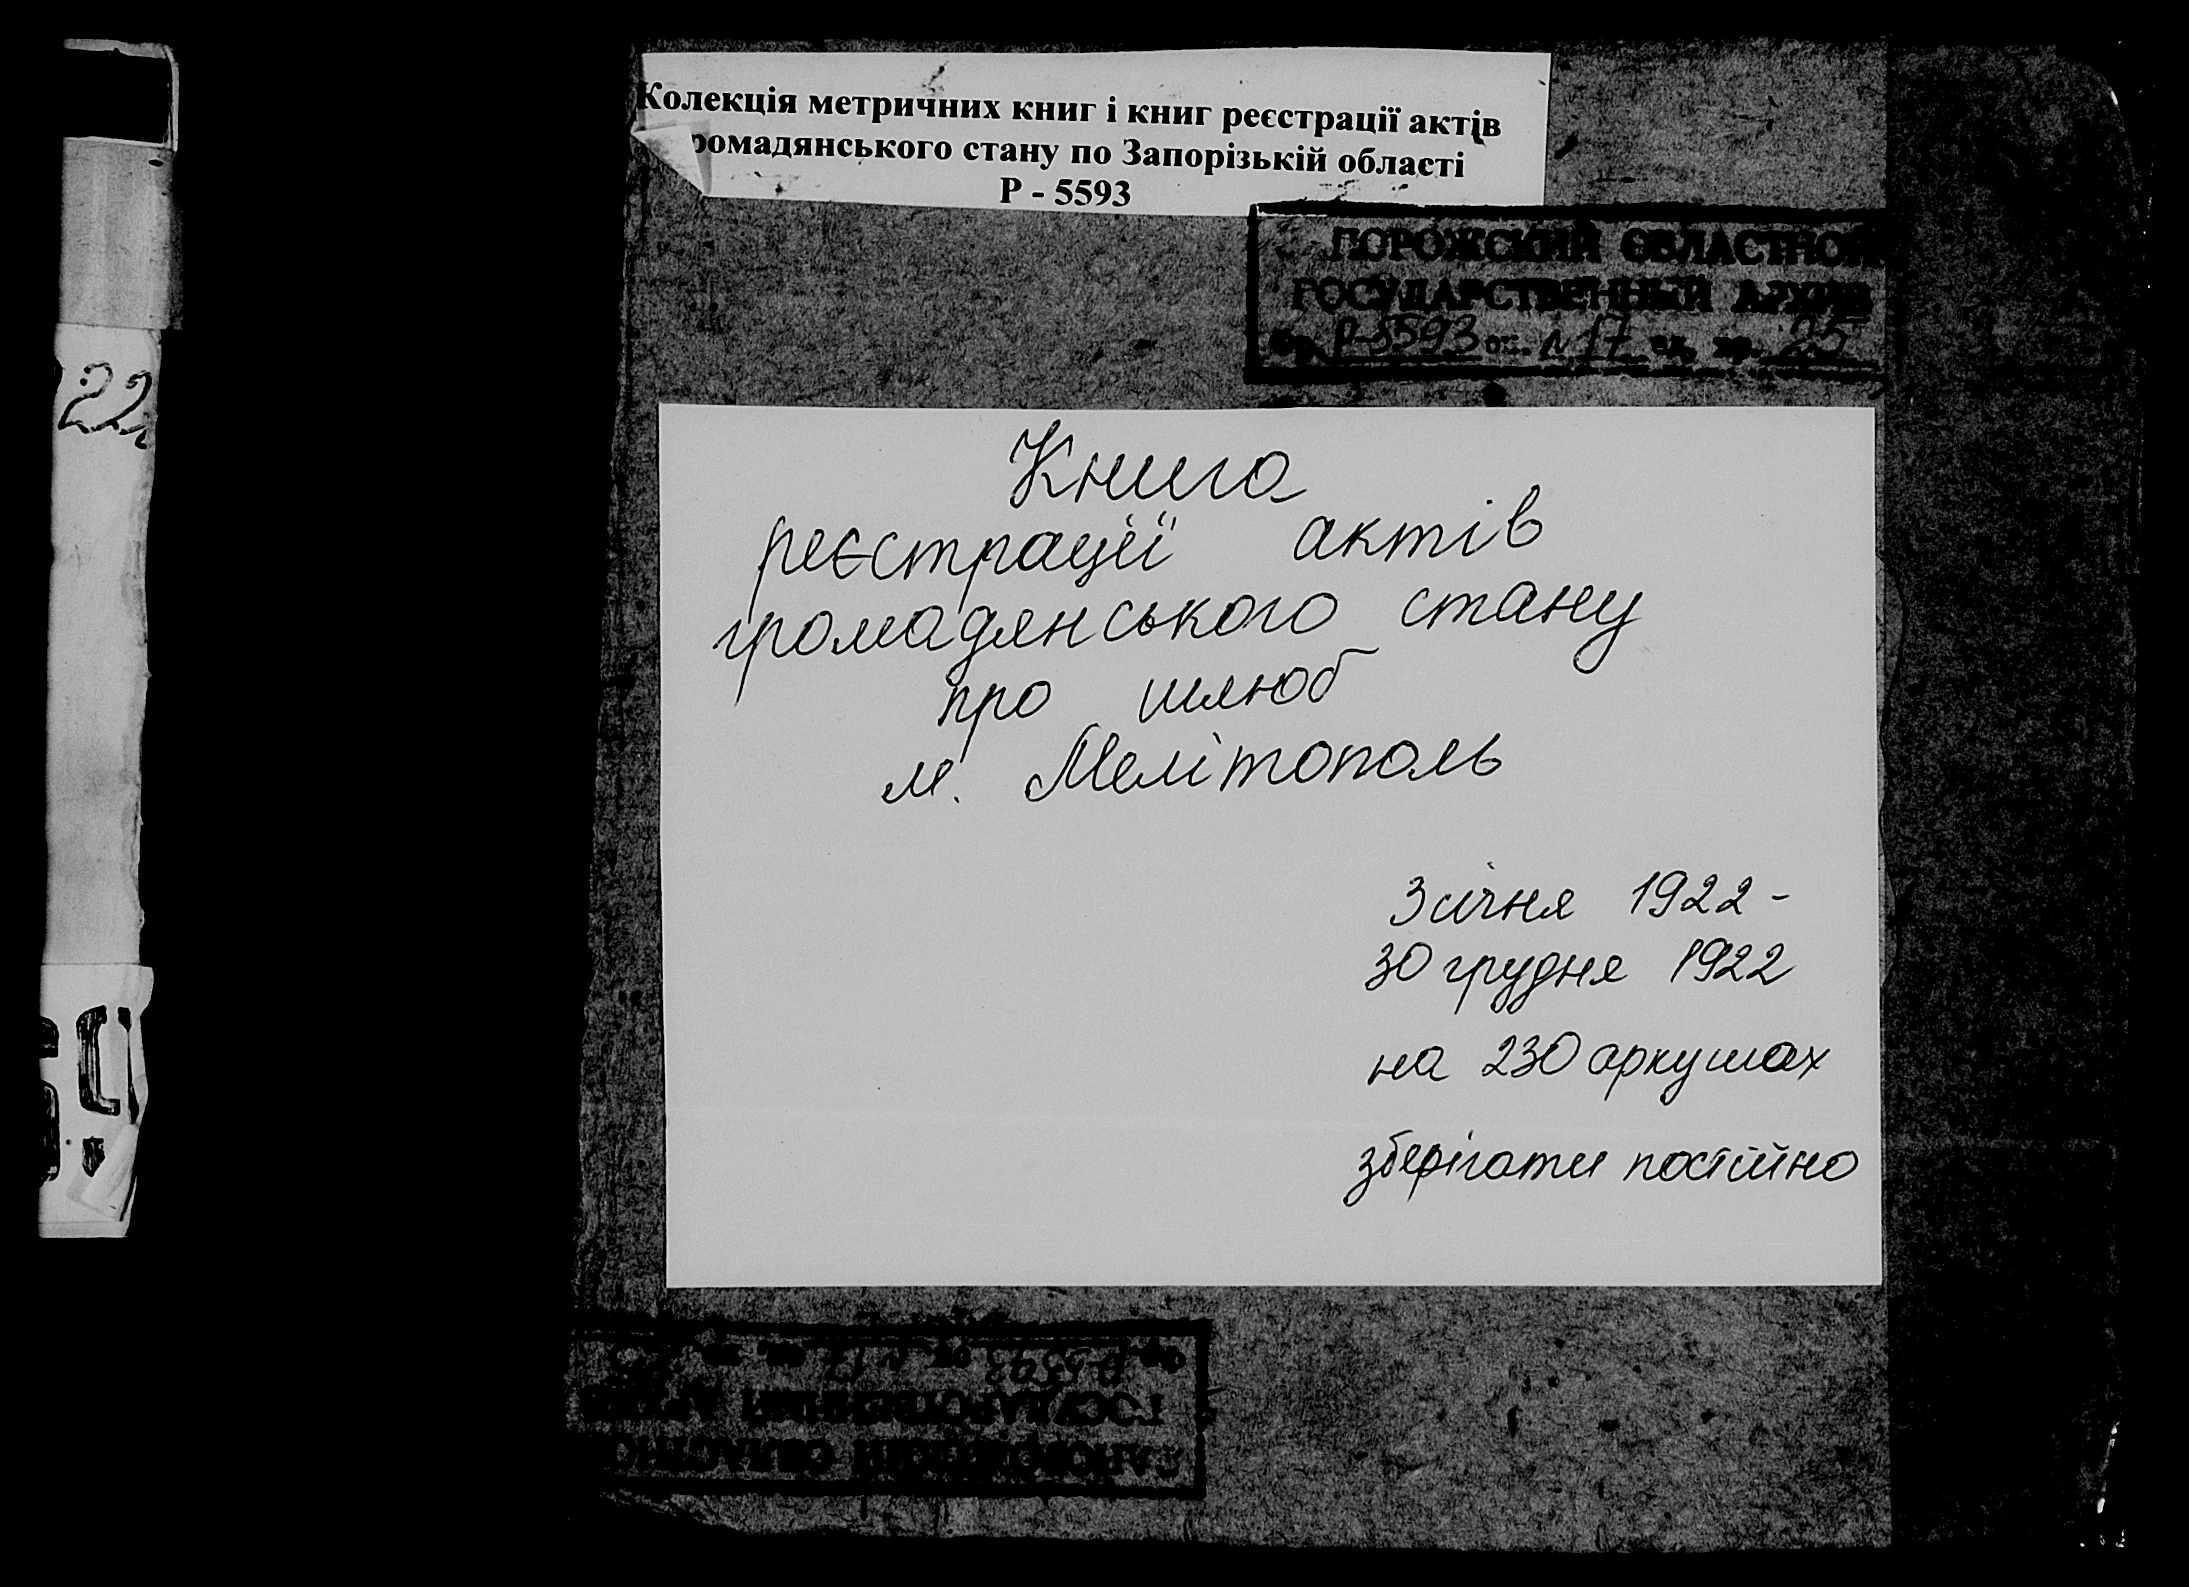 Колекція метричних книг і книг реєстрації актів
ромадянського стану по Запорізькій області
Р - 5593
ПОРОЖСКИЙ ОБЛАСТНОЙ
ГОСУДАРСТВЕННЫЙ АРХИВ
Фр. Р-5593 оп. №17 ед. хр. 25
22
Книга
реєстрації актів
громадянського стану
про шлюб
м. Мелітополь
3 січня 1922 -
30 грудня 1922
на 230 аркушах
зберігати постійно
Ф. Р-5593 оп.
ГОСУДАРСТВЕННЫЙ
ЗАПОРОЖСКИЙ ОБЛАСТНО